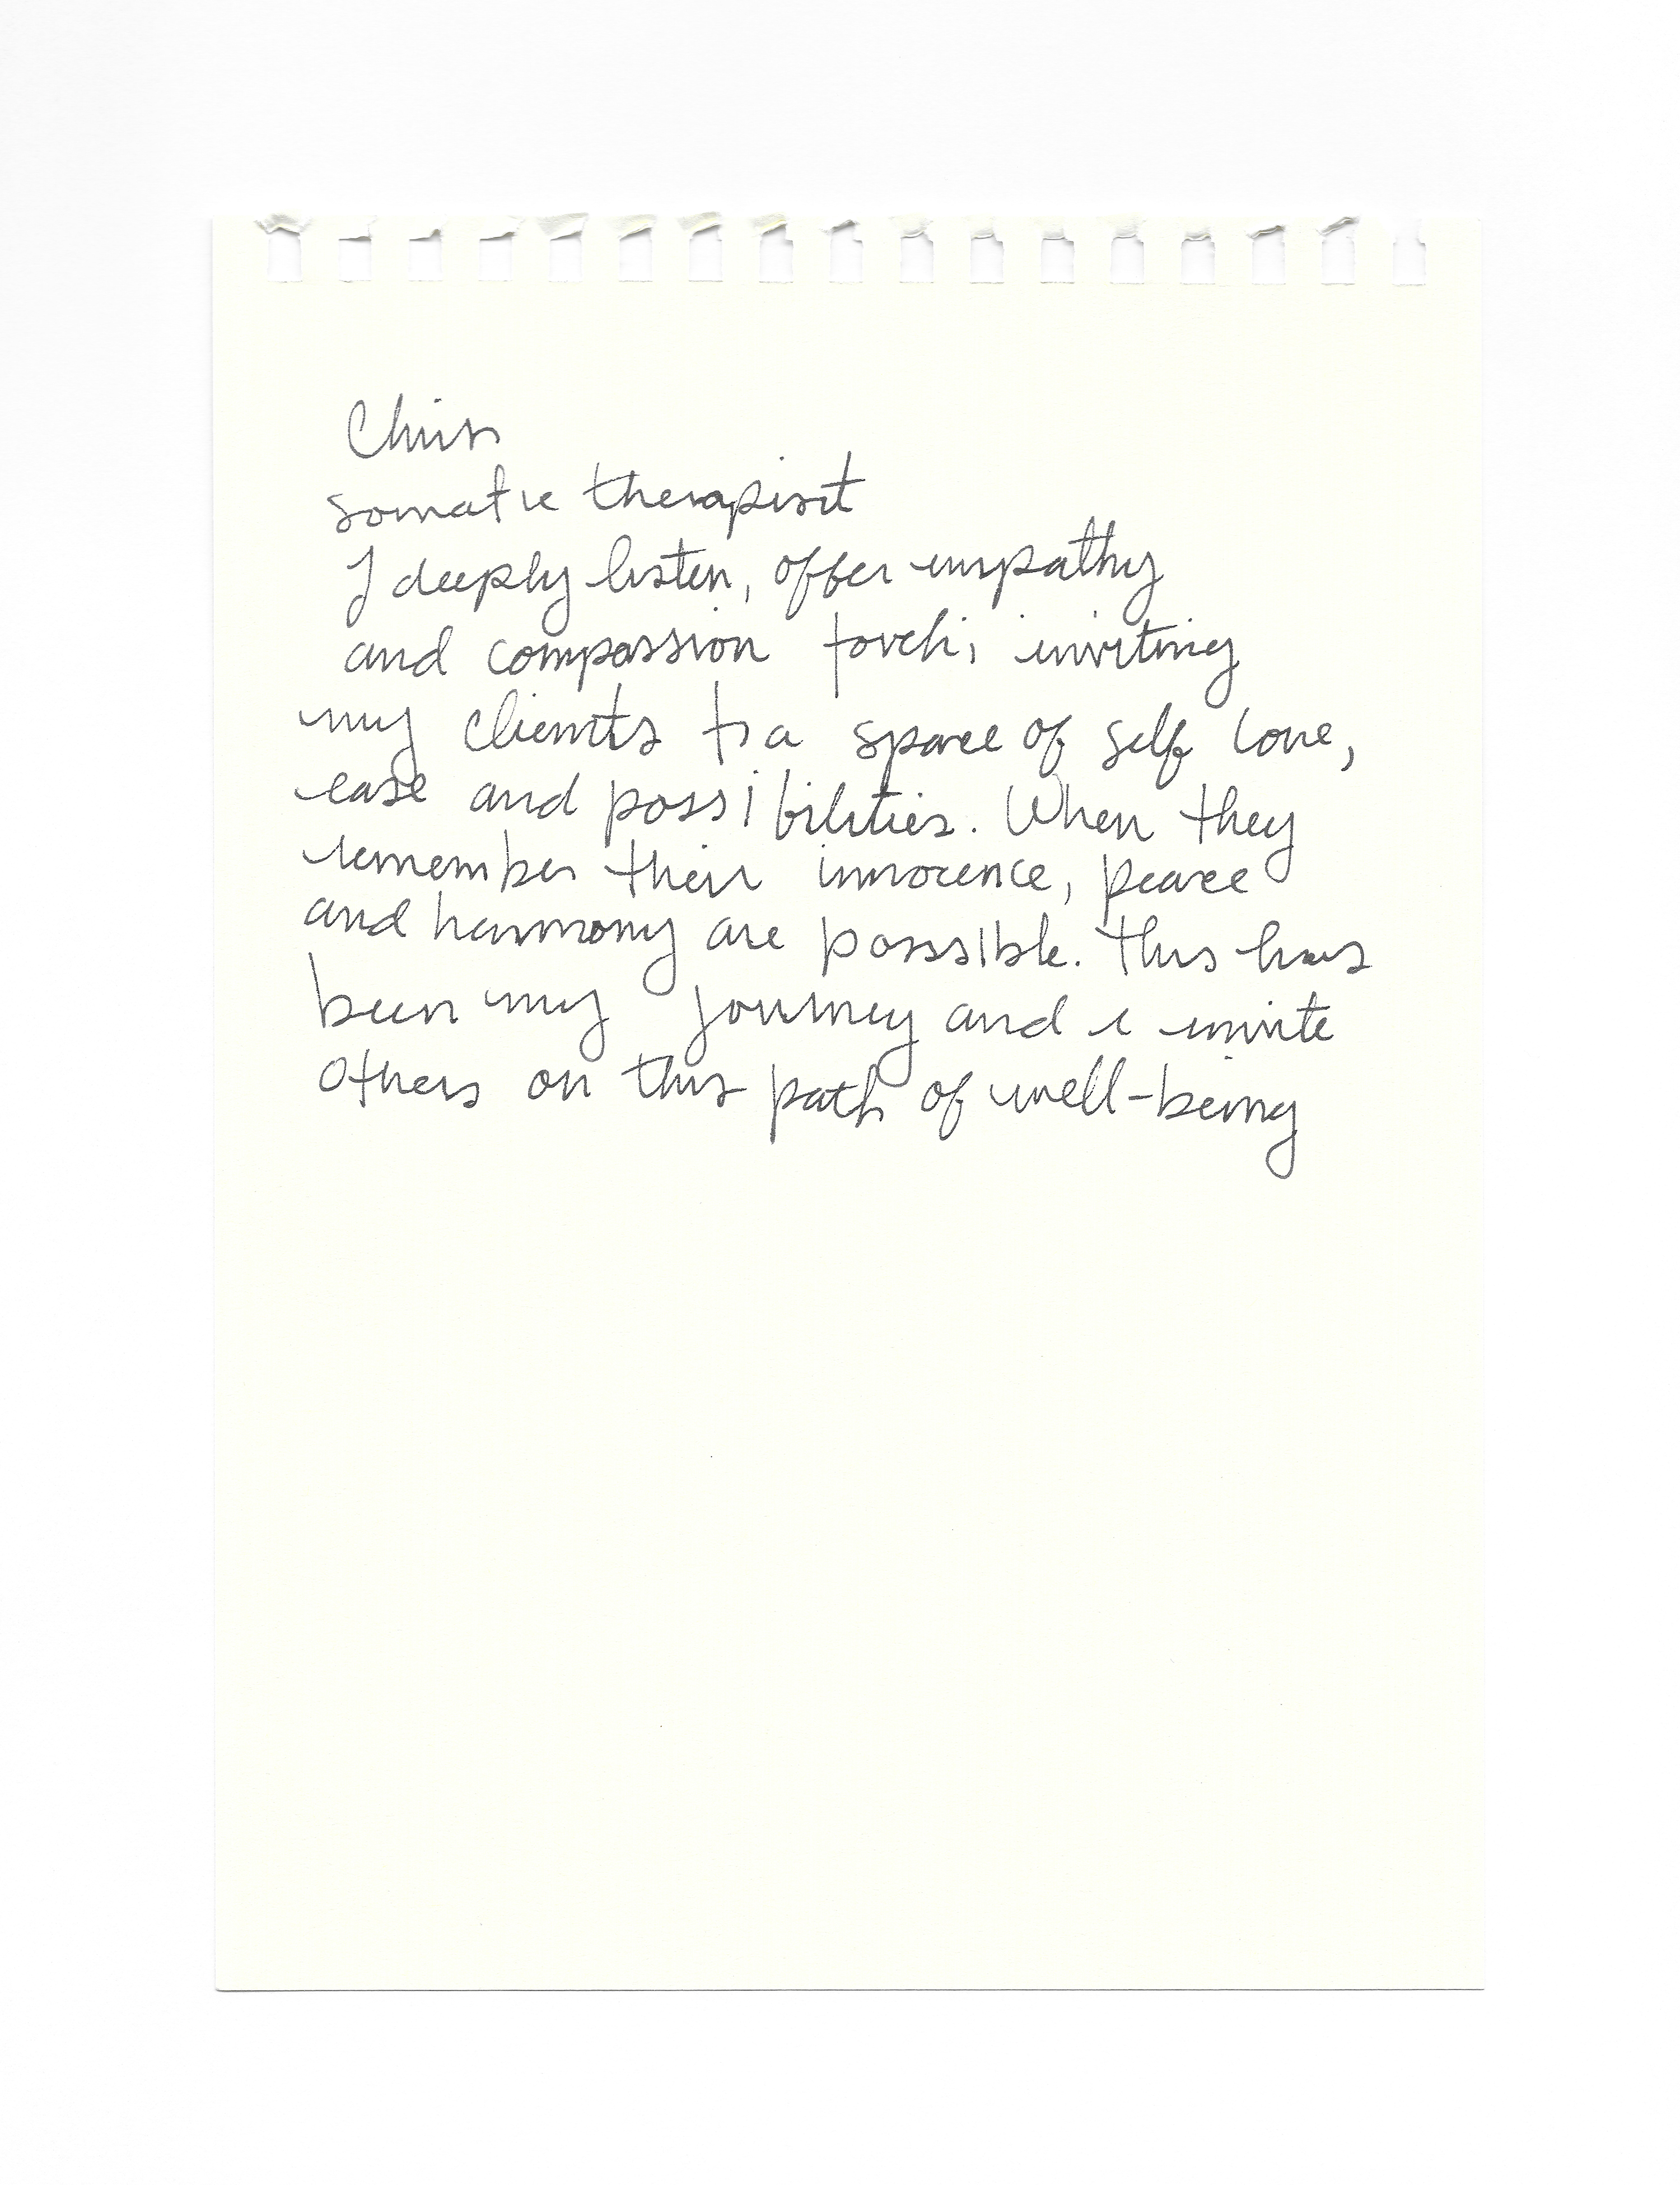 Chris
somatic therapist
I deeply listen, offer empathy
and compassion touch; inviting
my clients to a space of self love,
ease and possibilities. When they
remember their innocence, peace
and harmony are posssible. This has
been my journey and i invite
others on this path of well-being